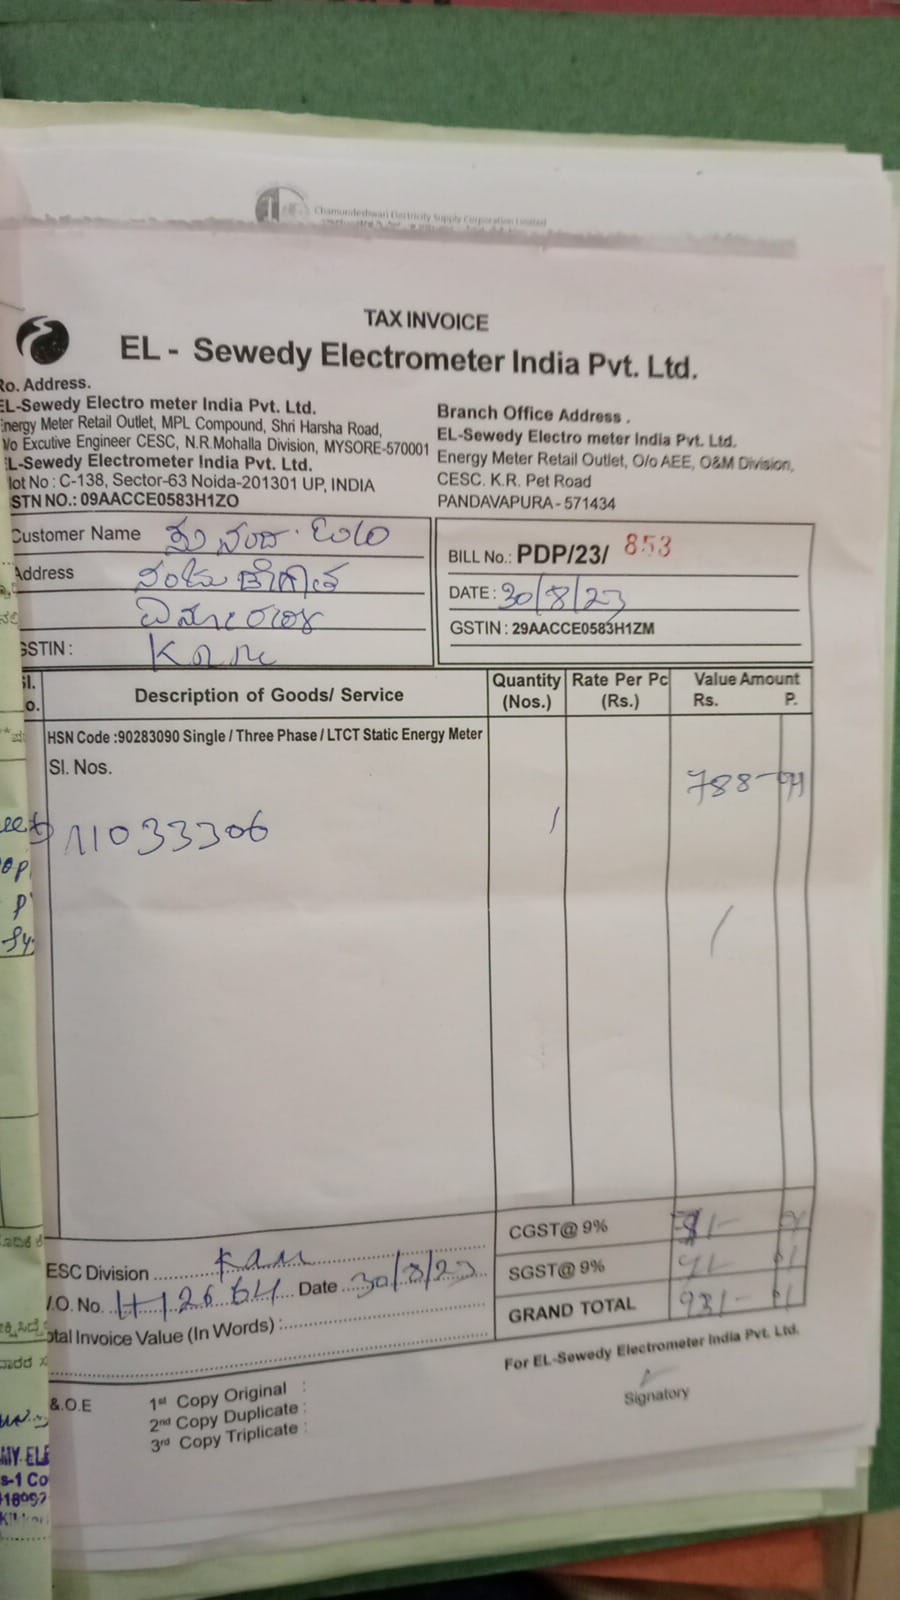 Chamundeshwari Electricity Supply Corporation Limited
TAX INVOICE
EL - Sewedy Electrometer India Pvt. Ltd.
Ro. Address.
EL-Sewedy Electro meter India Pvt. Ltd.
Energy Meter Retail Outlet, MPL Compound, Shri Harsha Road,
/o Excutive Engineer CESC, N.R.Mohalla Division, MYSORE-570001
EL-Sewedy Electrometer India Pvt. Ltd.
lot No : C-138, Sector-63 Noida-201301 UP, INDIA
STN NO.: 09AACCE0583H1ZO
Branch Office Address .
EL-Sewedy Electro meter India Pvt. Ltd.
Energy Meter Retail Outlet, O/o AEE, O&M Division,
CESC. K.R. Pet Road
PANDAVAPURA - 571434
Customer Name
Address
GSTIN :
BILL No.: PDP/23/ 853
DATE : 30/8/23
GSTIN : 29AACCE0583H1ZM
Sl. No. Description of Goods/ Service Quantity (Nos.) Rate Per Pc (Rs.) Value Amount Rs. P.
HSN Code :90283090 Single / Three Phase / LTCT Static Energy Meter
Sl. Nos.
788-
11033306 1
CGST@ 9%
SGST@ 9%
GRAND TOTAL 931-
ESC Division
.O. No. Date 30/8/23
otal Invoice Value (In Words) :
For EL-Sewedy Electrometer India Pvt. Ltd.
Signatory
&.O.E
1st Copy Original :
2nd Copy Duplicate :
3rd Copy Triplicate :